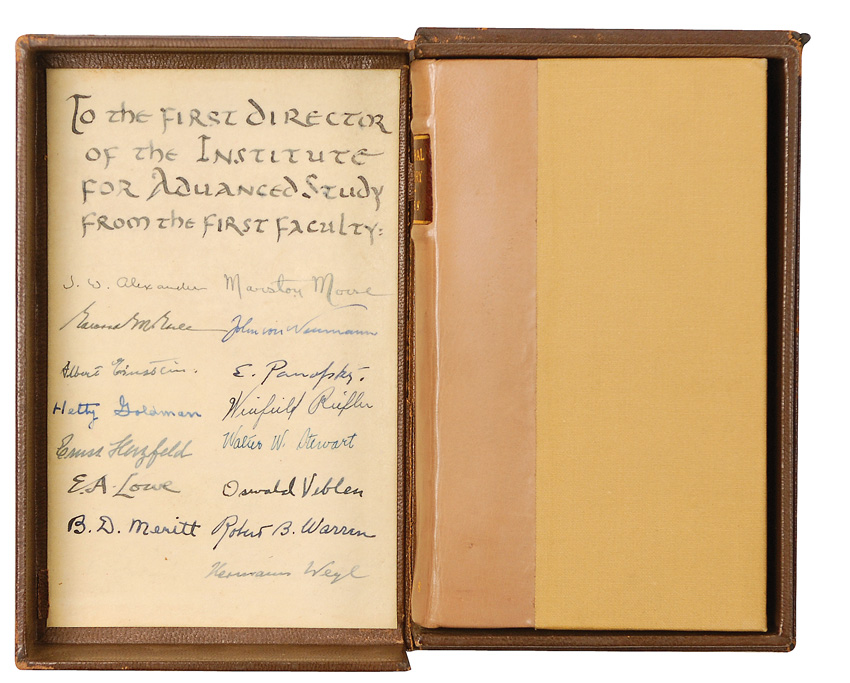 To the FIRST DIRECTOR
OF the INSTITUTE
FOR ADVANCED STUDY
FROM the FIRST FACULTY:
J. W. Alexander
Marston Morse
Edward M Earle
John von Neumann
Albert Einstein.
E. Panofsky.
Hetty Goldman
Winfield Riefler
Ernst Herzfeld
Walter W. Stewart
E.A. Lowe
Oswald Veblen
B. D. Meritt
Robert B. Warren
Hermann Weyl